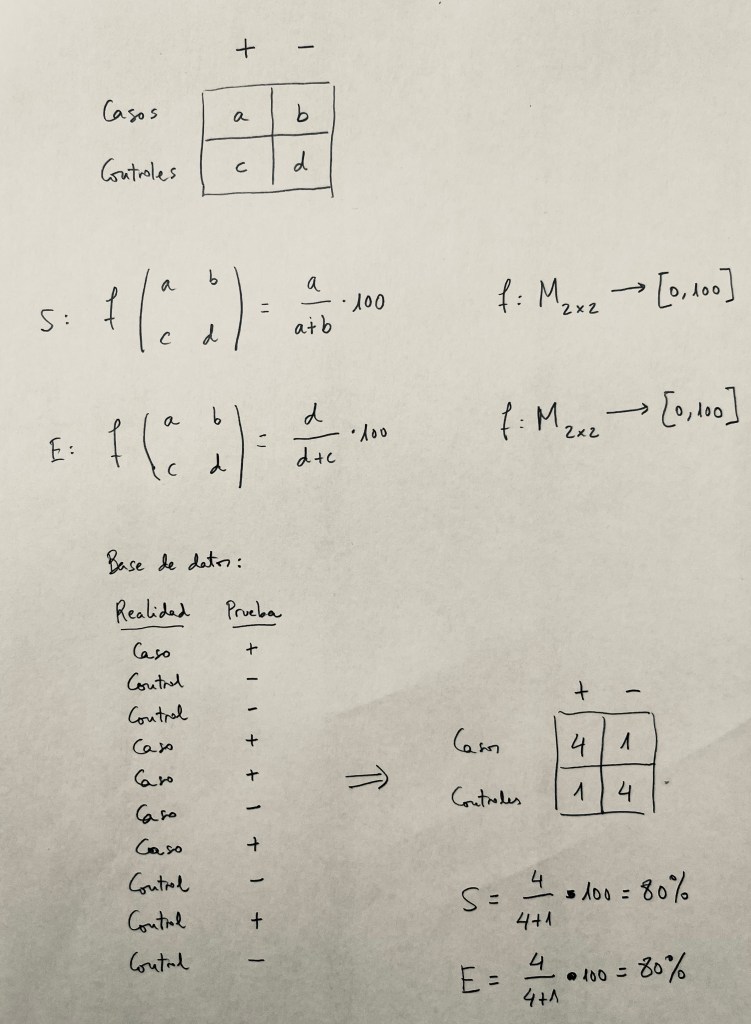 + −
Casos a b
Controles c d
S: f ( a b c d ) = a / a+b · 100 f: M2x2 → [0,100]
E: f ( a b c d ) = d / d+c · 100 f: M2x2 → [0,100]
Base de datos:
Realidad Prueba
Caso +
Control −
Control −
Caso +
Caso +
Caso −
Caso +
Control −
Control +
Control −
⇒
+ −
Casos 4 1
Controles 1 4
S = 4 / 4+1 • 100 = 80%
E = 4 / 4+1 • 100 = 80%